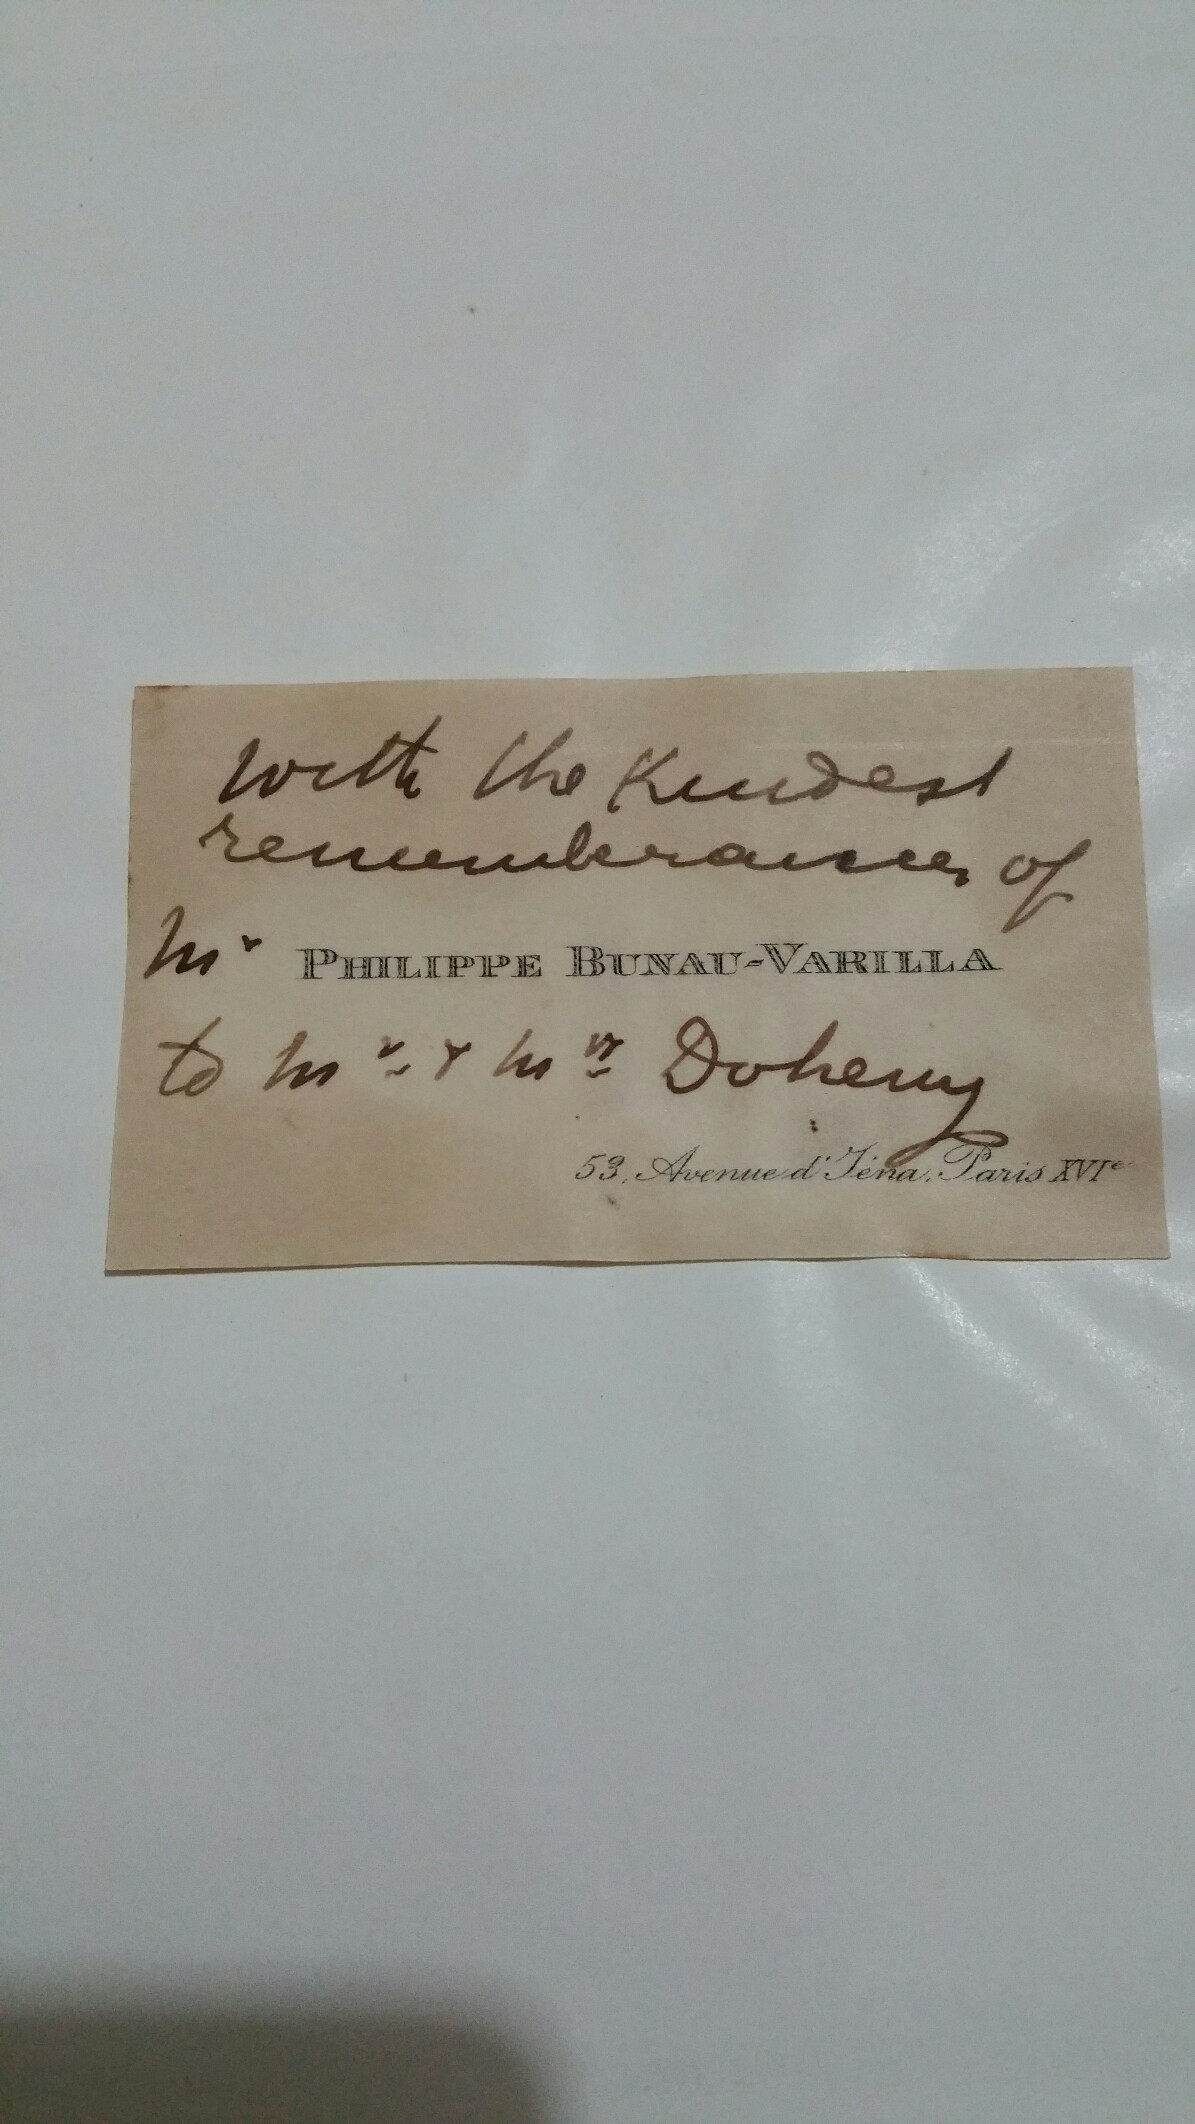 With the Kindest
remembrances of
Mr PHILIPPE BUNAU-VARILLA
to Mr & Mrs Doheny
53, Avenue d'Iéna, Paris XVIe